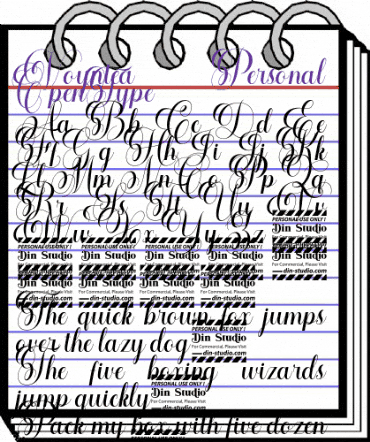 Personal
OpenType
Aa Bb Cc Dd Ee
Ff Gg Hh Ii Jj Kk
Ll Mm Nn Oo Pp Qq
Rr Ss Tt Uu
PERSONAL USE ONLY !
Din Studio
For Commercial, Please Visit
din-studio.com
PERSONAL USE ONLY ! PERSONAL USE ONLY ! PERSONAL USE ONLY ! PERSONAL USE ONLY !
Din Studio Din Studio Din Studio Din Studio
Din Studio Din Studio Din Studio Din Studio
For Commercial, Please Visit For Commercial, Please Visit For Commercial, Please Visit For Commercial, Please Visit
din-studio.com din-studio.com din-studio.com din-studio.com
The quick brown fox jumps
over the lazy dog
PERSONAL USE ONLY !
Din Studio
For Commercial, Please Visit
din-studio.com
The five boxing wizards
jump quickly
PERSONAL USE ONLY !
Din Studio
For Commercial, Please Visit
din-studio.com
Pack my box with five dozen